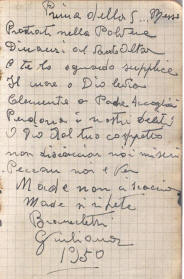 Prima della S... Messa
Prostrati nella Polvere
Dinanzi al Sant Altar
E te lo sguardo supplice
Il cuore o Dio
Clemente o Padre accogli
Perdona i nostri
O Dio dal tuo cospetto
non discacciar noi miseri
Peccam noi e
Madre non
Madre si ripete
Giuliana
1950